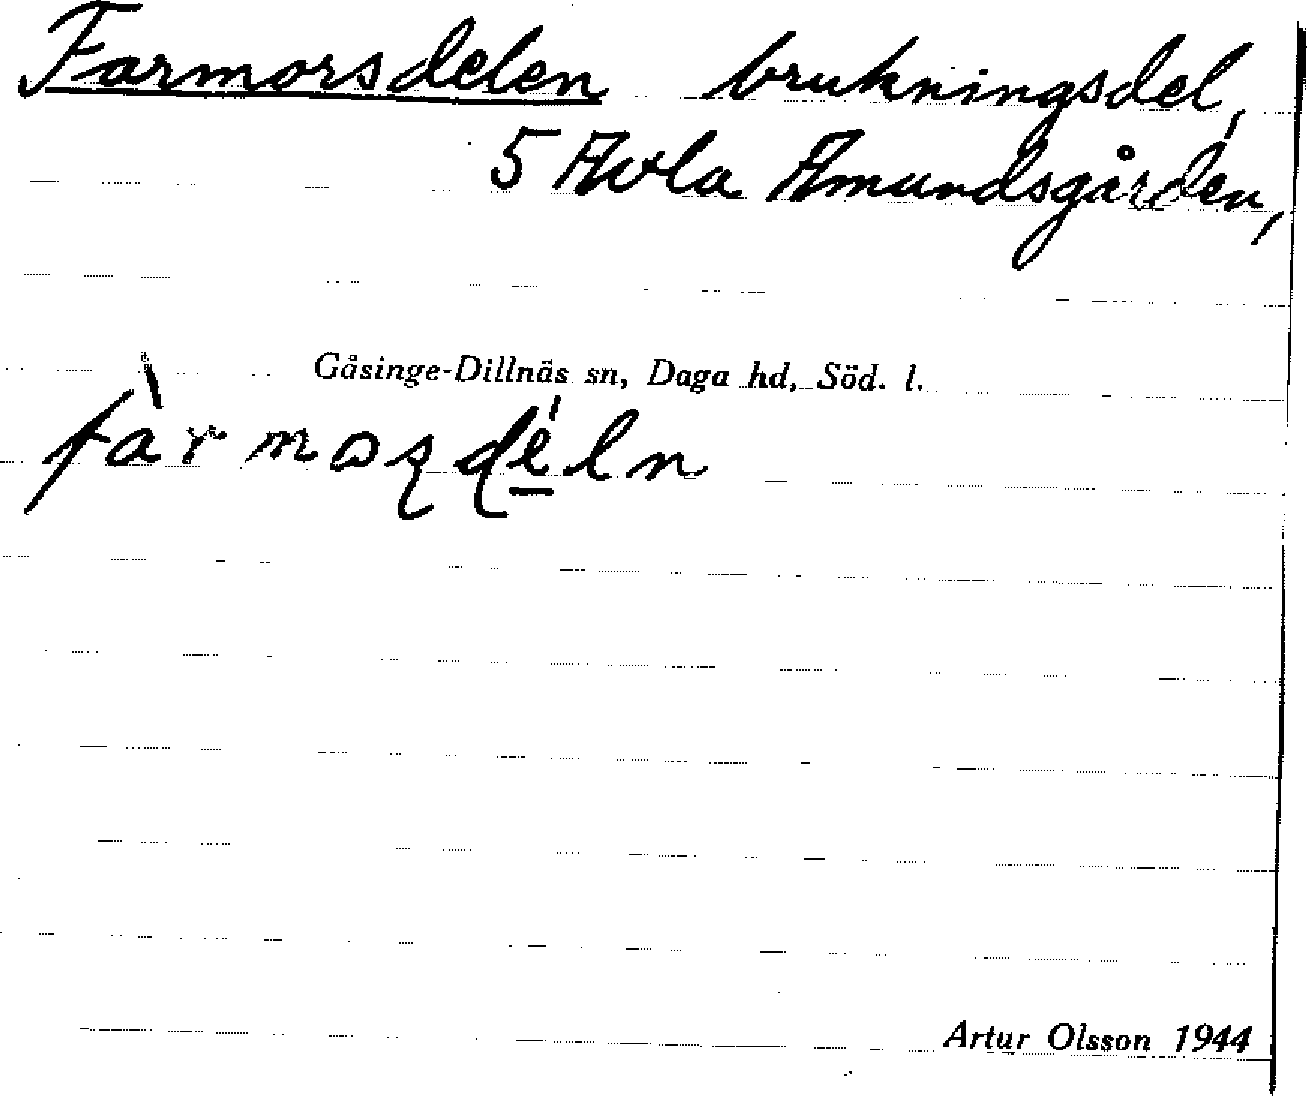 Farmorsdelen brukningsdel,
5 Avla Amundsgården,
Gåsinge-Dillnäs sn, Daga hd, Söd. l.
fàrmoʂɖé̱ln
Artur Olsson 1944